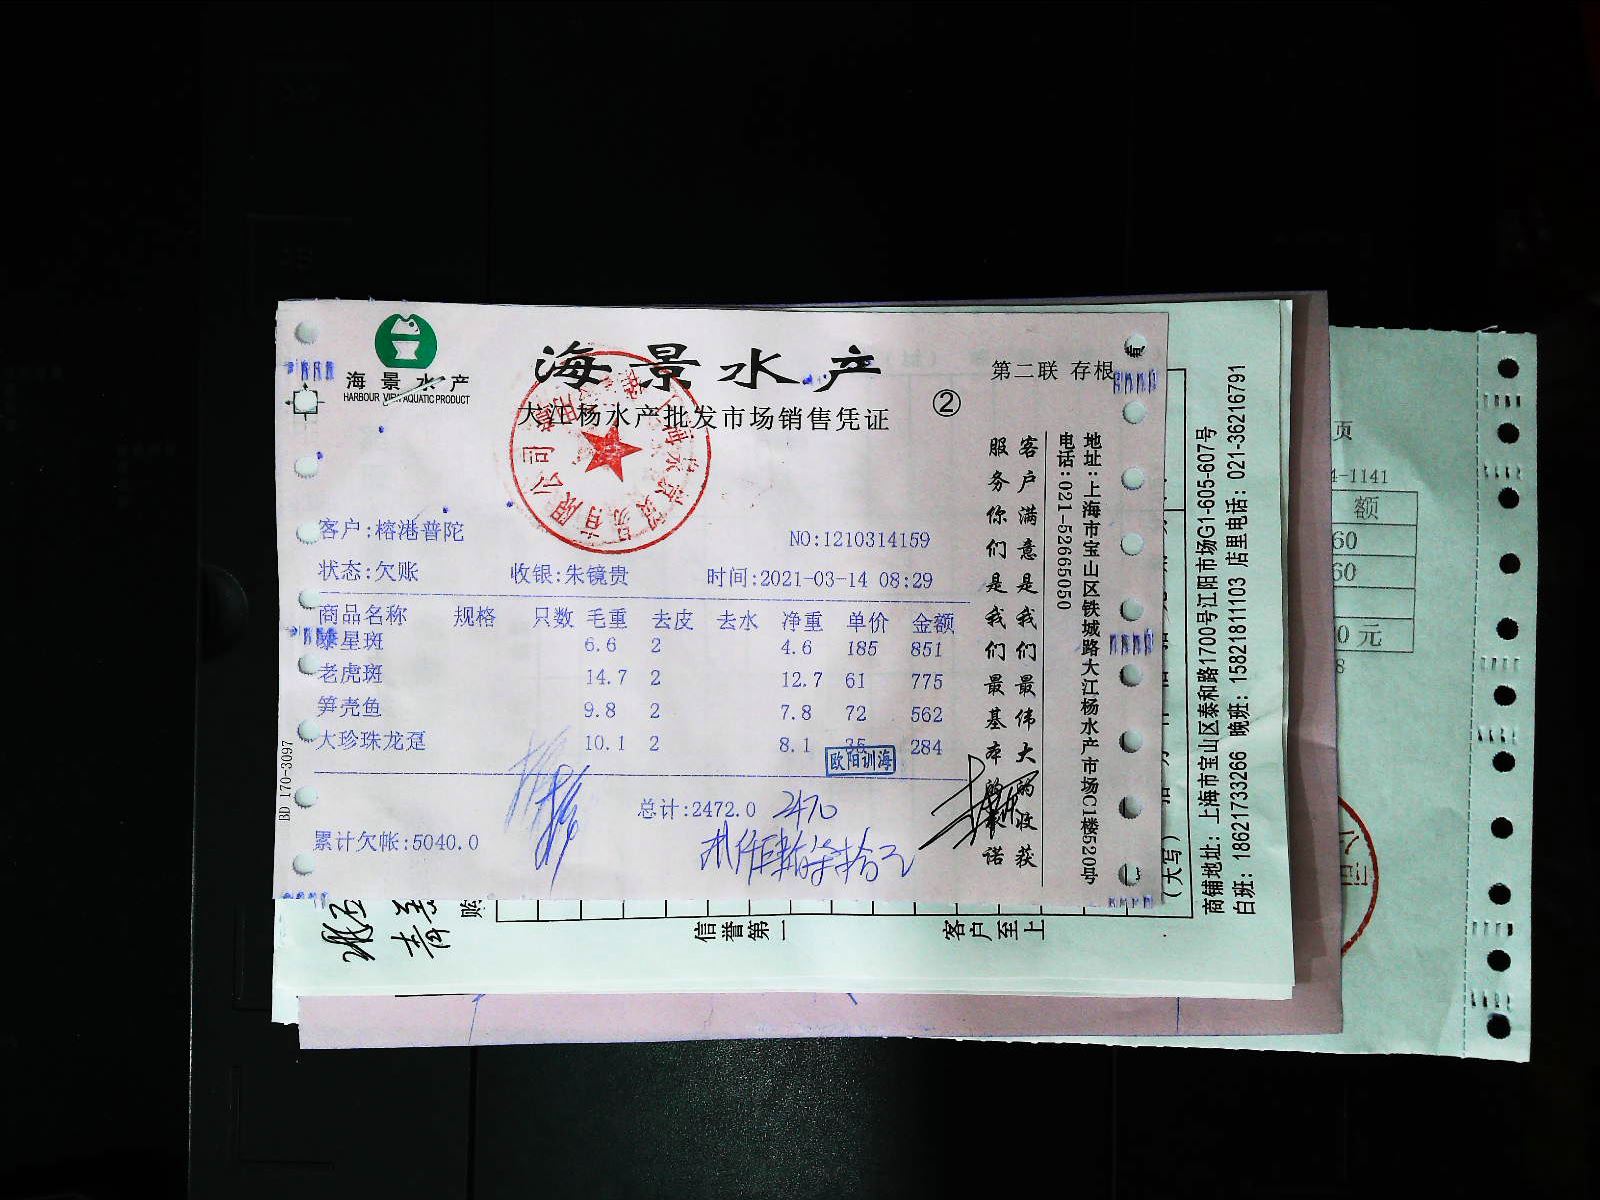 海景水产
HARBOUR VIEW AQUATIC PRODUCT
海景水产
大江杨水产批发市场销售凭证
②
第二联 存根
黄
客户:榕港普陀
NO:1210314159
状态:欠账 收银:朱镜贵 时间:2021-03-14 08:29
商品名称 规格 只数 毛重 去皮 去水 净重 单价 金额
泰星斑 6.6 2 4.6 185 851
老虎斑 14.7 2 12.7 61 775
笋壳鱼 9.8 2 7.8 72 562
大珍珠龙趸 10.1 2 8.1 35 284
欧阳训海
总计:2472.0 2470
累计欠帐:5040.0
贰仟肆佰柒拾元
BD 170-3097
客户满意是我们最伟大的收获
服务你们是我们最基本的承诺
地址:上海市宝山区铁城路大江杨水产市场C1楼520号
电话:021-52665050
商铺地址:上海市宝山区泰和路1700号江阳市场G1-605-607号
白班:18621733266 晚班:15821811103 店里电话:021-36216791
(大写)
信誉第一
客户至上
账
页
4-1141
额
60
60
0元
8
公司